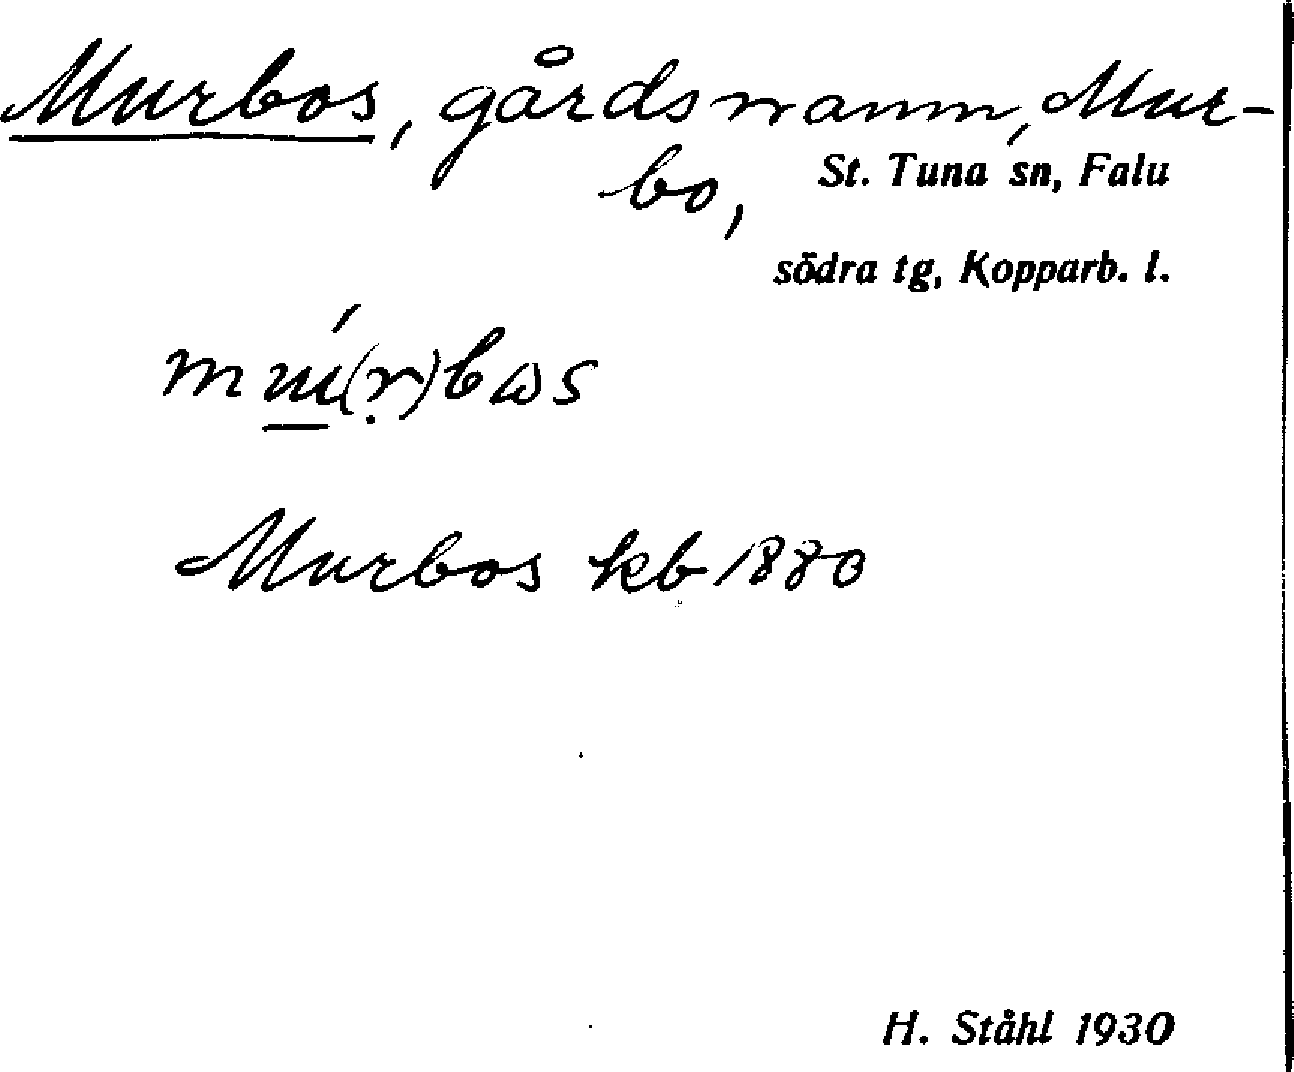 Murbos, gårdsnamn, Mur-
bo, St. Tuna sn, Falu
södra tg, Kopparb. l.
Murbos kb 1880
H. Ståhl 1930